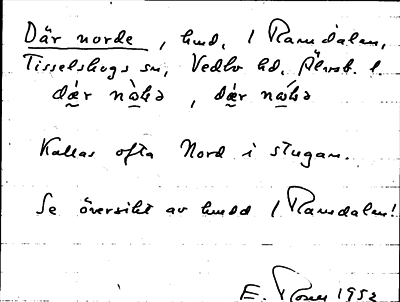 Där norde, hmd, i Ramdalen,
Tisselskogs sn, Vedbo hd, Älvsb. l.
dǽr nòhə, dǽr nóhə
Kallas ofta Nord i stugan.
Se översikt av hmdd i Ramdalen!
E. 1952